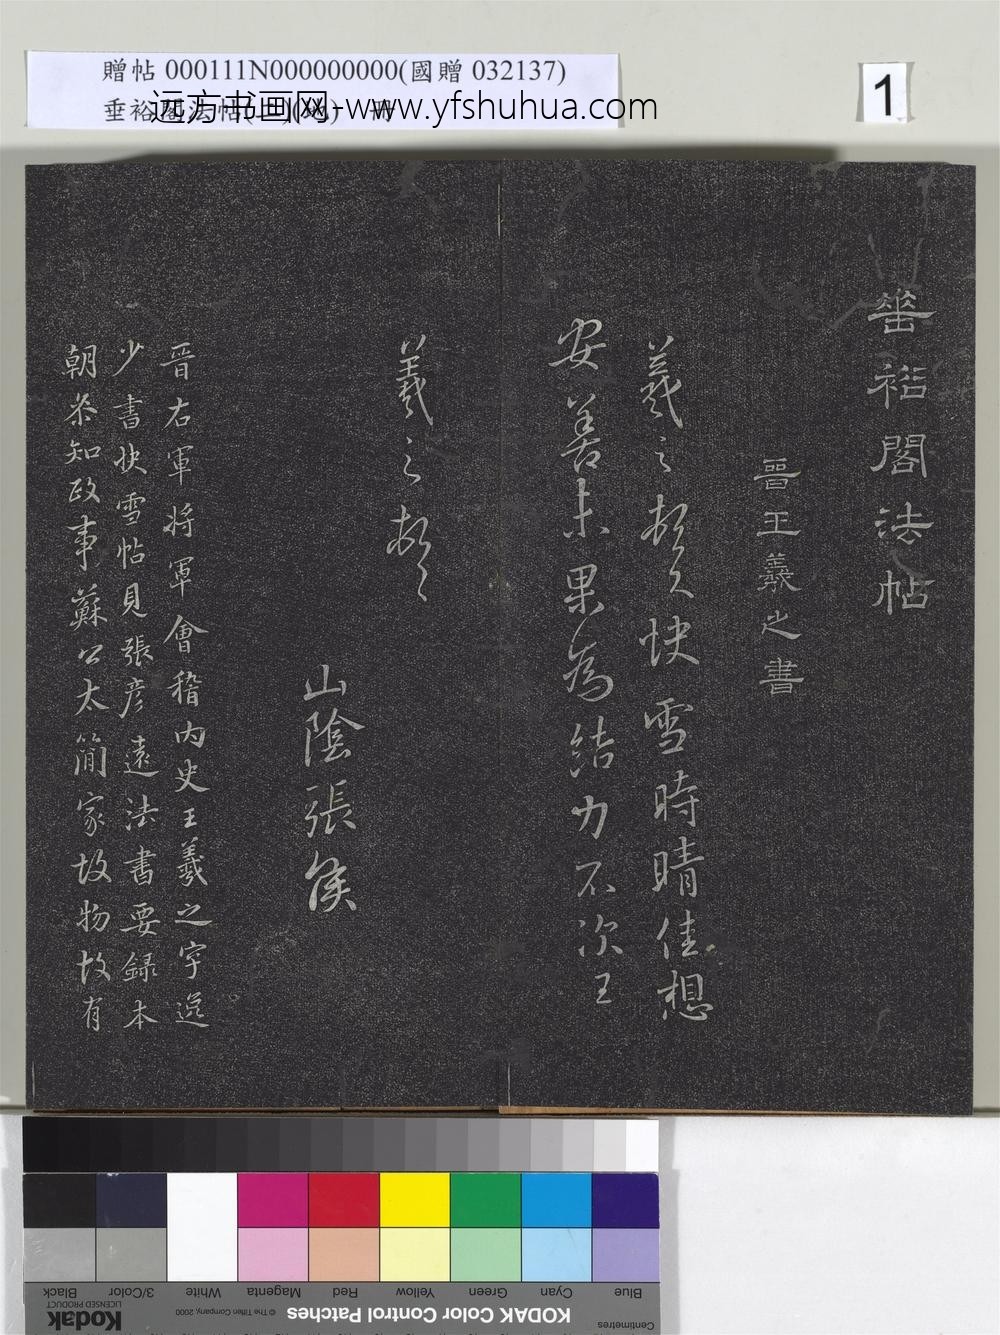 贈帖 000111N000000000(國贈 032137)
远方书画网-www.yfshuhua.com
1
垂裕閣法帖
晉王羲之書
羲之頓首快雪時晴佳想
安善未果為結力不次王
羲之頓首
山陰張侯
晉右軍將軍會稽內史王羲之字逸
少書快雪帖見張彥遠法書要錄本
朝參知政事蘇公太簡家故物故有
Blue Cyan Green Yellow Red Magenta White 3/Color Black
Centimetres KODAK Color Control Patches © The Tiffen Company, 2000 Kodak
LICENSED PRODUCT